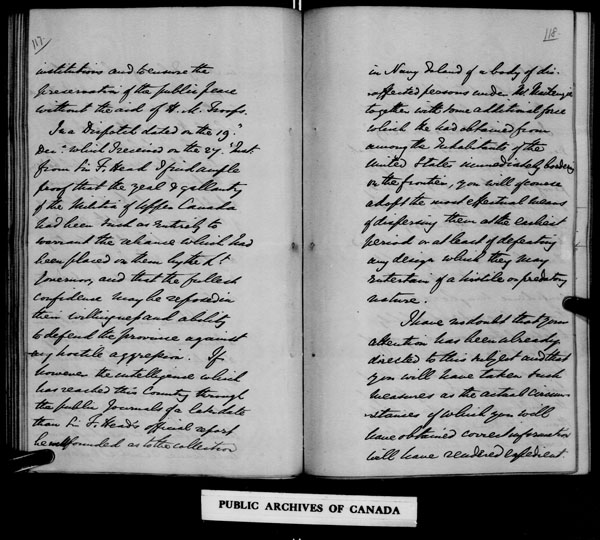 117
institutions and to ensure the
preservation of the public Peace
without the aid of H. M. Troops.
In a Dispatch dated on the 19.
Dec. which I received on the 27. Inst
from Sir F. Head I find ample
proof that the zeal & gallantry
of the Militia of Upper Canada
had been such as entirely to
warrant the reliance which had
been placed on them by the Lt.
Governor, and that the fullest
confidence may be reposed in
their willingness and ability
to defend the Province against
any hostile aggression. If
however the intelligence which
has reached this Country through
the public Journals of a late date
than Sir F. Head's official report
be well founded as to the collection
118
in Navy Island of a body of dis-
-affected persons under Mr.
together with some additional force
which he had obtained from
among the Inhabitants of the
United States immediately bordering
on the frontier, you will of course
adopt the most effectual means
of dispersing them at the earliest
period or at least of defeating
any design which they may
entertain of a hostile or predatory
nature.
I have no doubt that your
attention has been already
directed to this subject and that
you will have taken such
measures as the actual circum-
-stances of which you will
have obtained correct information
will have rendered expedient
PUBLIC ARCHIVES OF CANADA